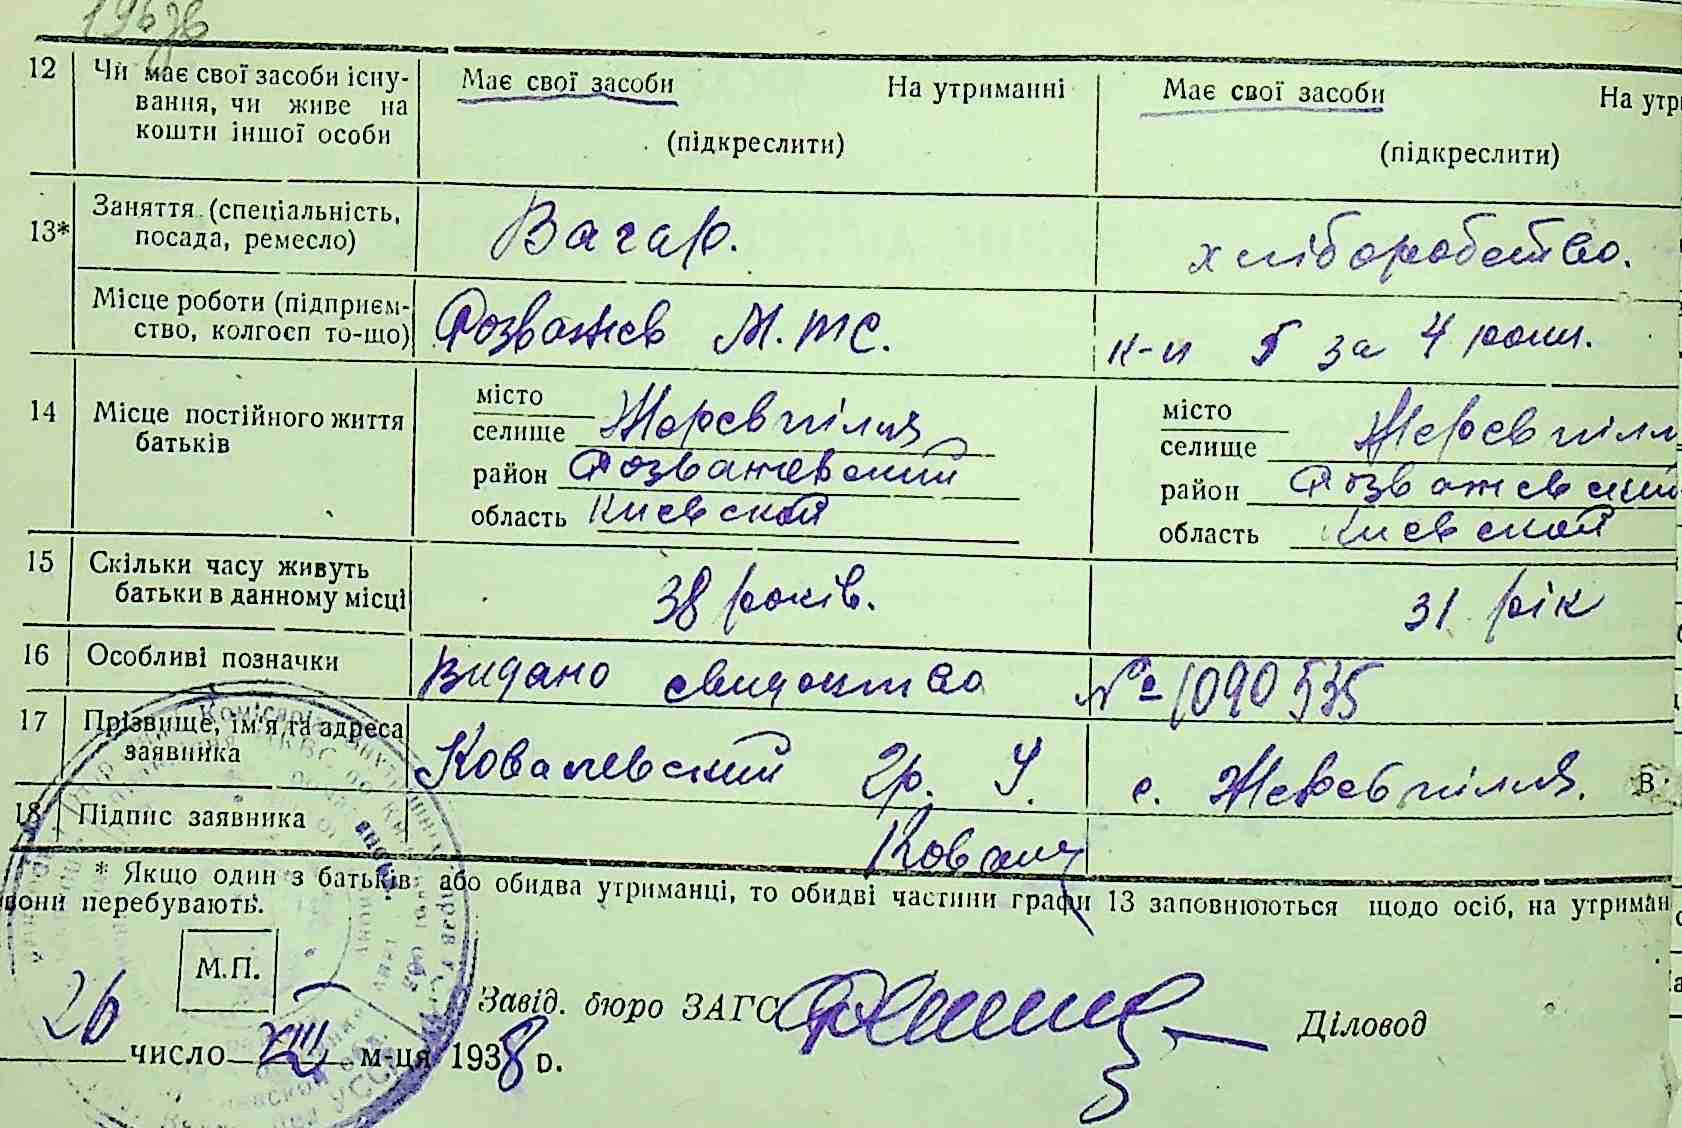 12 Чи має свої засоби існу-
вання, чи живе на
кошти іншої особи
Має свої засоби На утриманні
(підкреслити)
Має свої засоби На утри
(підкреслити)
13* Заняття (спеціальність,
посада, ремесло)
Вагар.
хліборобство.
Місце роботи (підприєм-
ство, колгосп то-що)
Розважев М.ТС.
за 4 роки.
14 Місце постійного життя
батьків
місто
селище Жеревпілля
район Розважевский
область Киевской
місто
селище Жеревпілл
район Розважевский
область Киевской
15 Скільки часу живуть
батьки в данному місці
38 років.
31 рік
16 Особливі позначки
Видано свидоцтво № 1090535
17 Прізвище, ім'я та адреса
заявника
Ковалевский Гр. У. с. Жеревпілля. В
18 Підпис заявника
Ковал
* Якщо один з батьків або обидва утриманці, то обидві частини графи 13 заповнюються щодо осіб, на утриман
вони перебувають.
М.П.
Завід. бюро ЗАГС Діловод
26 число XII м-ця 1938 р.